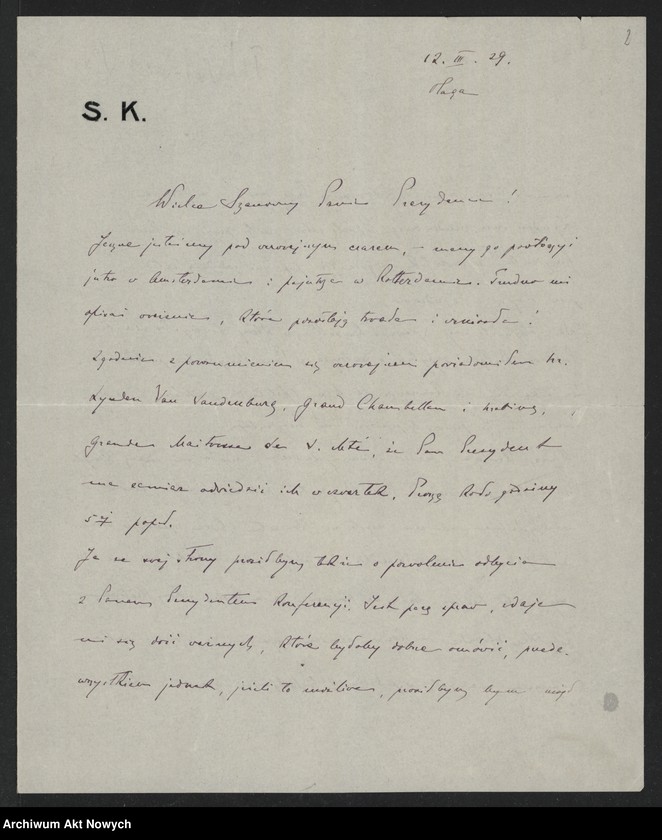 2
12. III. 29.
Haga
S. K.
Wielce Szanowny Panie Prezydencie!
Jeszcze jesteśmy pod wczorajszym czarem, – mamy go
jutro w Amsterdamie i pojutrze w Rotterdamie. Trudno mi
opisać wrażenie, które
Zgodnie z porozumieniem się wczorajszem powiadomiłem hr.
Lynden Van Sandenburg, Grand Chambellan i hrabinę,
Grande Maitresse de, że Pan Prezydent
ma zamiar odwiedzić ich w czwartek, koło godziny
5ej popoł.
Ja ze swej strony prosiłbym także o pozwolenie odbycia
z Panem Prezydentem Konferencji. Jest parę spraw, zdaje
mi się dość ważnych, które byłoby dobrze omówić, przede-
wszystkiem jednak, jeśli to możliwe, prosiłbym bym mógł
Archiwum Akt Nowych